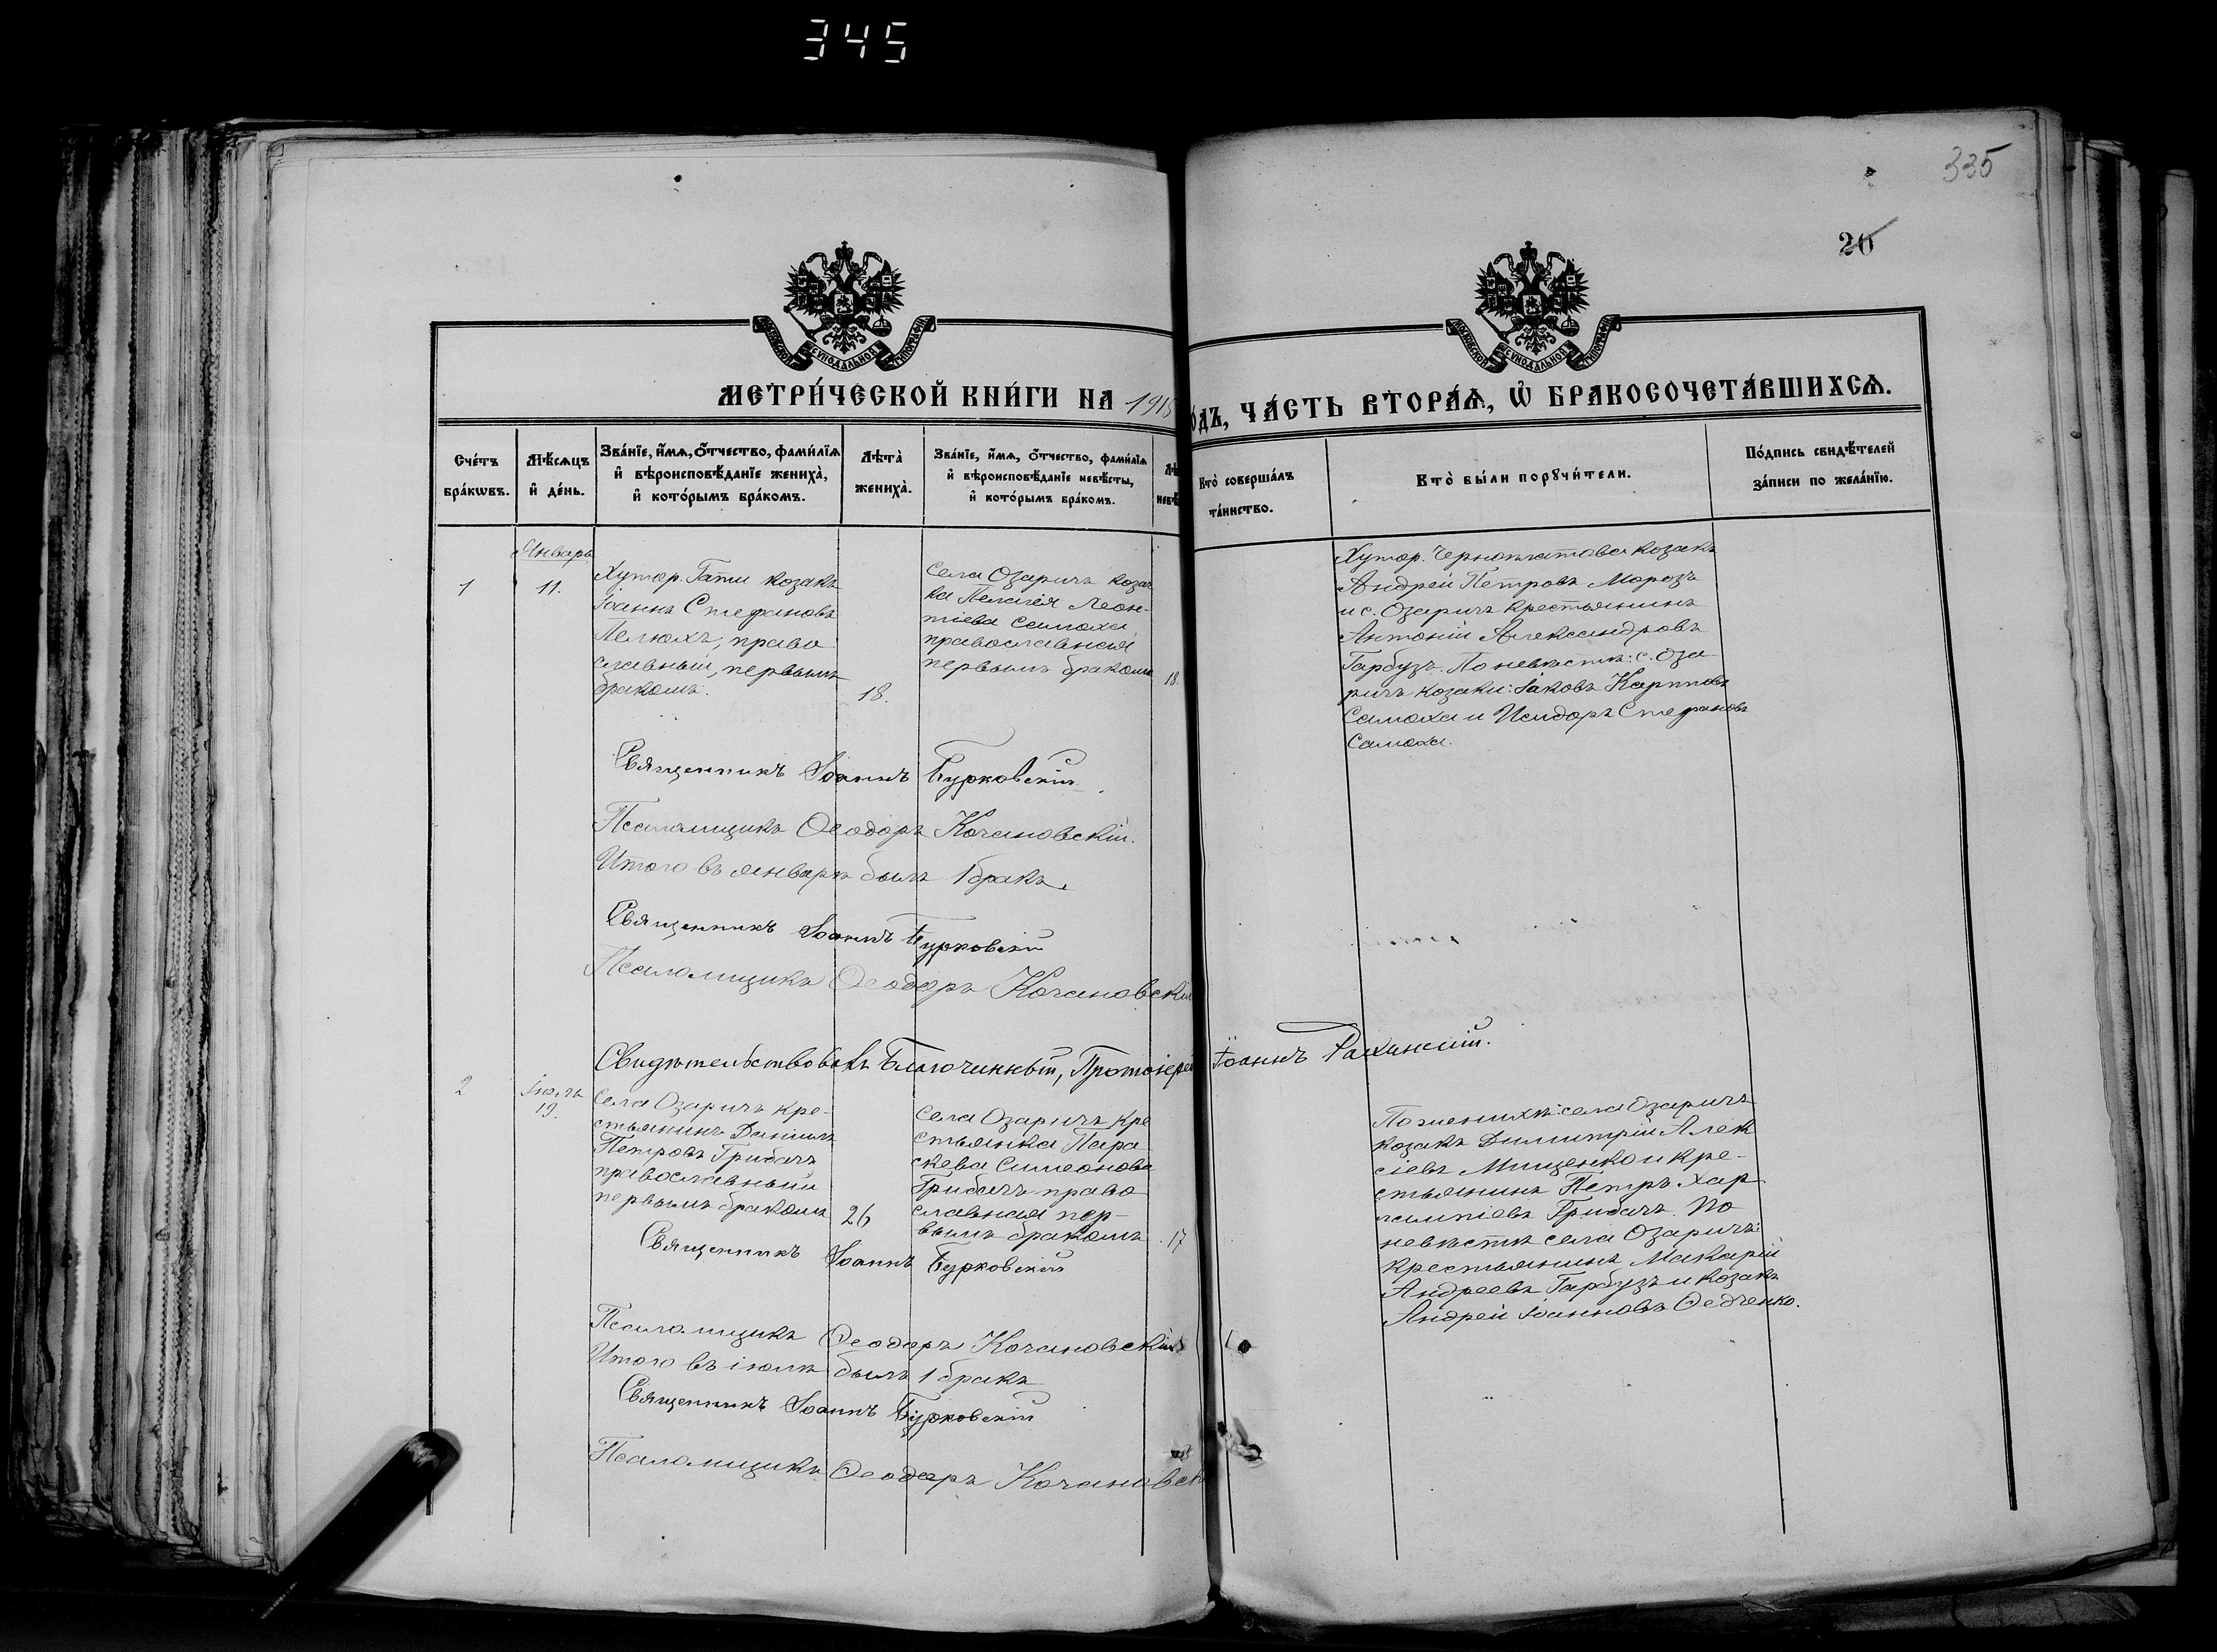 345
335
20
МОСКОВСКОЙ СѴНОДАЛЬНОЙ ТИПОГРАФІИ
МОСКОВСКОЙ СѴНОДАЛЬНОЙ ТИПОГРАФІИ
МЕТРИ́ЧЕСКОЙ КНИ́ГИ НА 1915
ОДЪ, ЧА́СТЬ ВТОРА́Ѧ, Ѽ БРАКОСОЧЕТА́ВШИХСѦ.
Сче́тъ
бра́кѡвъ.
Мѣ́сѧцъ
и҆ де́нь.
Зва́нїе, и҆́мѧ, ѻ҆́тчество, фами́лїѧ
и҆ вѣроисповѣ́данїе жениха̀,
и҆ кото́рымъ бра́комъ.
Лѣта̀
жениха̀.
Зва́нїе, и҆́мѧ, ѻ҆́тчество, фами́лїѧ
и҆ вѣроисповѣ́данїе невѣ́сты,
и҆ кото́рымъ бра́комъ.
Лѣ
невѣ
Кто̀ соверша́лъ
та́инство.
Кто̀ бы́ли порꙋчи́тели.
По́дпись свидѣ́телей
за́писи по жела́нїю.
Январь
1
11.
Хутор. Гати козакъ
Іоаннъ Стефановъ
Пелюхъ, право
славный, первымъ
бракомъ.
18.
Села Озаричъ козач
ка Пелагія Леон-
тіева Самоха
православная
первымъ бракомъ
18.
Хутор. Черноплатова козакъ
Андрей Петровъ Морозъ
и с. Озаричъ крестьянинъ
Антоній Александровъ
Гарбузъ. По невѣстѣ: с. Оза
ричъ козаки: Іаковъ Карповъ
Самоха и Исидоръ Стефановъ
Самоха.
Священникъ Іоаннъ Бурковскій
Псаломщикъ Ѳеодоръ Кочановскій.
Итого въ январѣ былъ 1 бракъ.
Священникъ Іоаннъ Бурковскій
Псаломщикъ Ѳеодоръ Кочановскій
Свидѣтельствовалъ Благочинный, Протоіерей Іоаннъ
2
Іюль
19.
Села Озаричъ кре-
стьянинъ Даніилъ
Петровъ Грибачъ
православный
первымъ бракомъ
26
Села Озаричъ кре
стьянка Пара
скева Симеонова
Грибачъ право
славная пер-
вымъ бракомъ
17
По женихѣ: села Озаричъ
козакъ Димитрій Алек
сіевъ Мищенко и кре-
стьянинъ Петръ Хар
лампіевъ Грибачъ. По
невѣстѣ села Озаричъ:
крестьянинъ Макарій
Андреевъ Гарбузъ и козакъ
Андрей Іоанновъ Ѳедченко.
Священникъ Іоаннъ Бурковскій
Псаломщикъ Ѳеодоръ Кочановскій
Итого въ іюлѣ былъ 1 бракъ
Священникъ Іоаннъ Бурковскій
Псаломщикъ Ѳеодоръ Кочановск